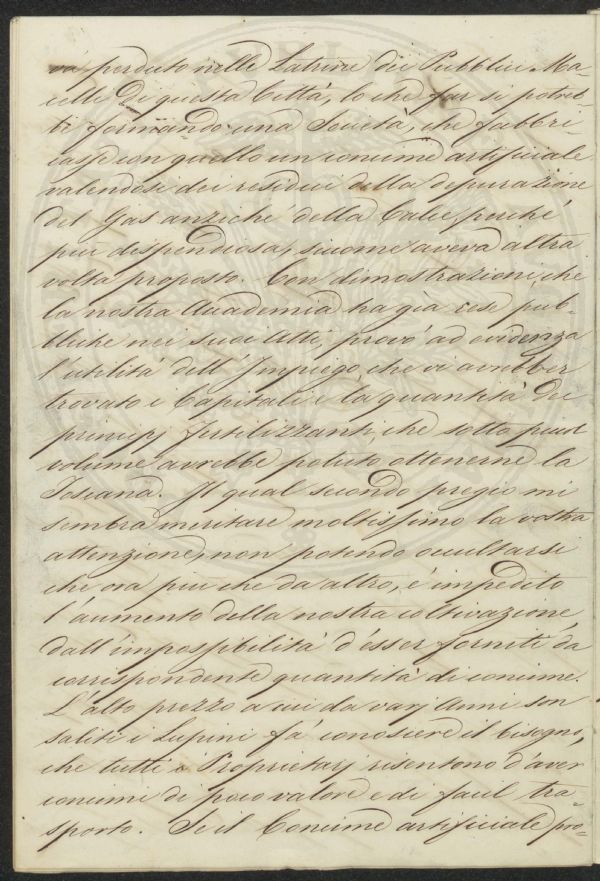 va perduto nelle Latrine dei Pubblici Ma-
celli di questa Città, lo che far si potreb-
be formando una Società, che fabbri-
casse con quello un concime artificiale
valendosi dei residui della depurazione
del Gas anziché della Calce, perché
più dispendiosa, siccome aveva altra
volta proposto. Con dimostrazioni, che
la nostra Accademia ha già rese pub-
bliche nei suoi Atti, provò ad evidenza
l'utilità dell'Impiego che vi avrebber
trovato i Capitali e la quantità dei
principj fertilizzanti, che sotto piccol
volume avrebbe potuto ottenerne la
Toscana. Il qual secondo pregio mi
sembra meritare moltissimo la vostra
attenzione, non potendo occultarsi
che ora più che da altro, è impedito
l'aumento della nostra coltivazione
dall'impossibilità d'esser forniti da
corrispondente quantità di concime.
L'alto prezzo a cui da varj Anni son
saliti i Lupini fà conoscere il bisogno,
che tutti i Proprietarj risentono d'aver
concimi di poco valore e di facil tra-
sporto. Se il Concime artificiale pro-